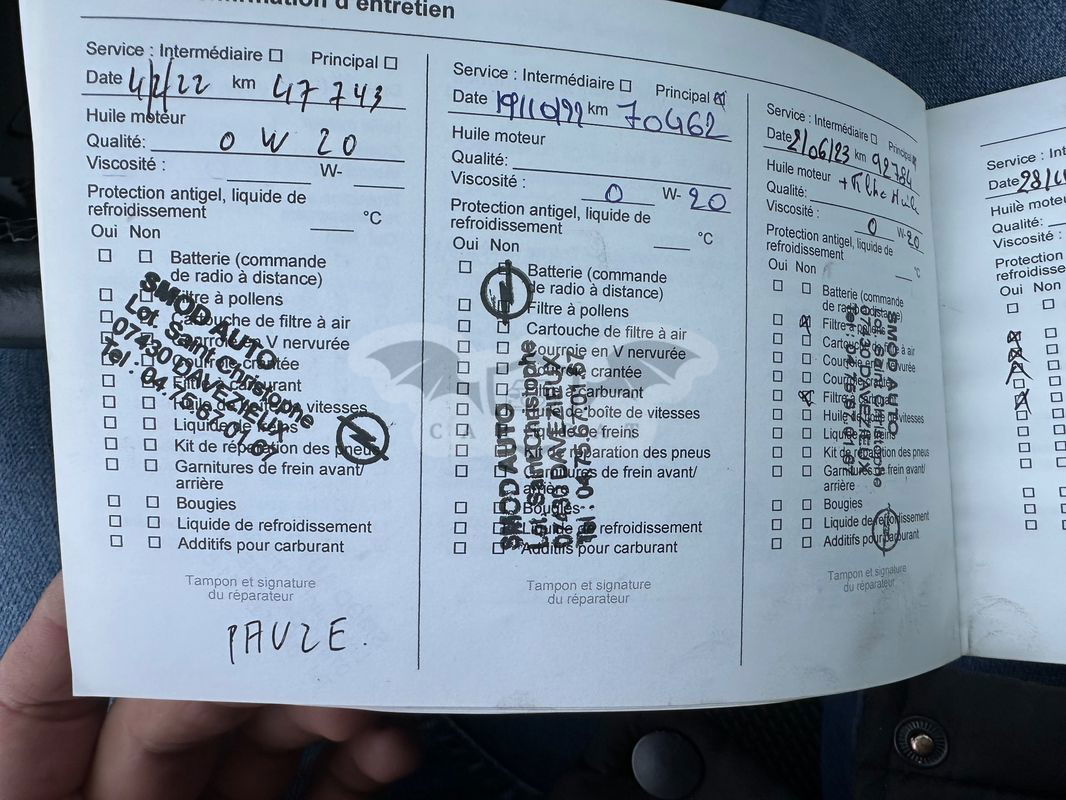 d'entretien
Service : Intermédiaire ☐ Principal ☐
Date 4/2/22 km 47 743
Huile moteur
Qualité: 0 W 20
Viscosité : W-
Protection antigel, liquide de
refroidissement °C
Oui Non
Batterie (commande
de radio à distance)
Filtre à pollens
Cartouche de filtre à air
Courroie en V nervurée
Courroie crantée
Filtre à carburant
Huile de boîte de vitesses
Liquide de freins
Kit de réparation des pneus
Garnitures de frein avant/
arrière
Bougies
Liquide de refroidissement
Additifs pour carburant
SMOD AUTO
Lot. Saint Christophe
07430 DAVEZIEUX
Tel : 04.75.67.01.87
Tampon et signature
du réparateur
PAUZE.
Service : Intermédiaire ☐ Principal ☒
Date 19/10/22 km 70462
Huile moteur
Qualité:
Viscosité : 0 W- 20
Protection antigel, liquide de
refroidissement °C
Oui Non
Batterie (commande
de radio à distance)
Filtre à pollens
Cartouche de filtre à air
Courroie en V nervurée
Courroie crantée
Filtre à carburant
Huile de boîte de vitesses
Liquide de freins
Kit de réparation des pneus
Garnitures de frein avant/
arrière
Bougies
Liquide de refroidissement
Additifs pour carburant
SMOD AUTO
Lot. Saint Christophe
07430 DAVEZIEUX
Tel : 04.75.67.01.87
Tampon et signature
du réparateur
Service : Intermédiaire ☐ Principal
Date 2/06/23 km 92784
Huile moteur + filtre Huile
Qualité:
Viscosité : 0 W- 20
Protection antigel, liquide de
refroidissement °C
Oui Non
Batterie (commande
de radio à distance)
Filtre à pollens
Cartouche de filtre à air
Courroie en V nervurée
Courroie crantée
Filtre à carburant
Huile de boîte de vitesses
Liquide de freins
Kit de réparation des pneus
Garnitures de frein avant/
arrière
Bougies
Liquide de refroidissement
Additifs pour carburant
SMOD AUTO
Lot. Saint Christophe
07430 DAVEZIEUX
Tel : 04.75.67.01.87
Tampon et signature
du réparateur
Service :
Date 28/
Qualité:
Viscosité :
Oui Non